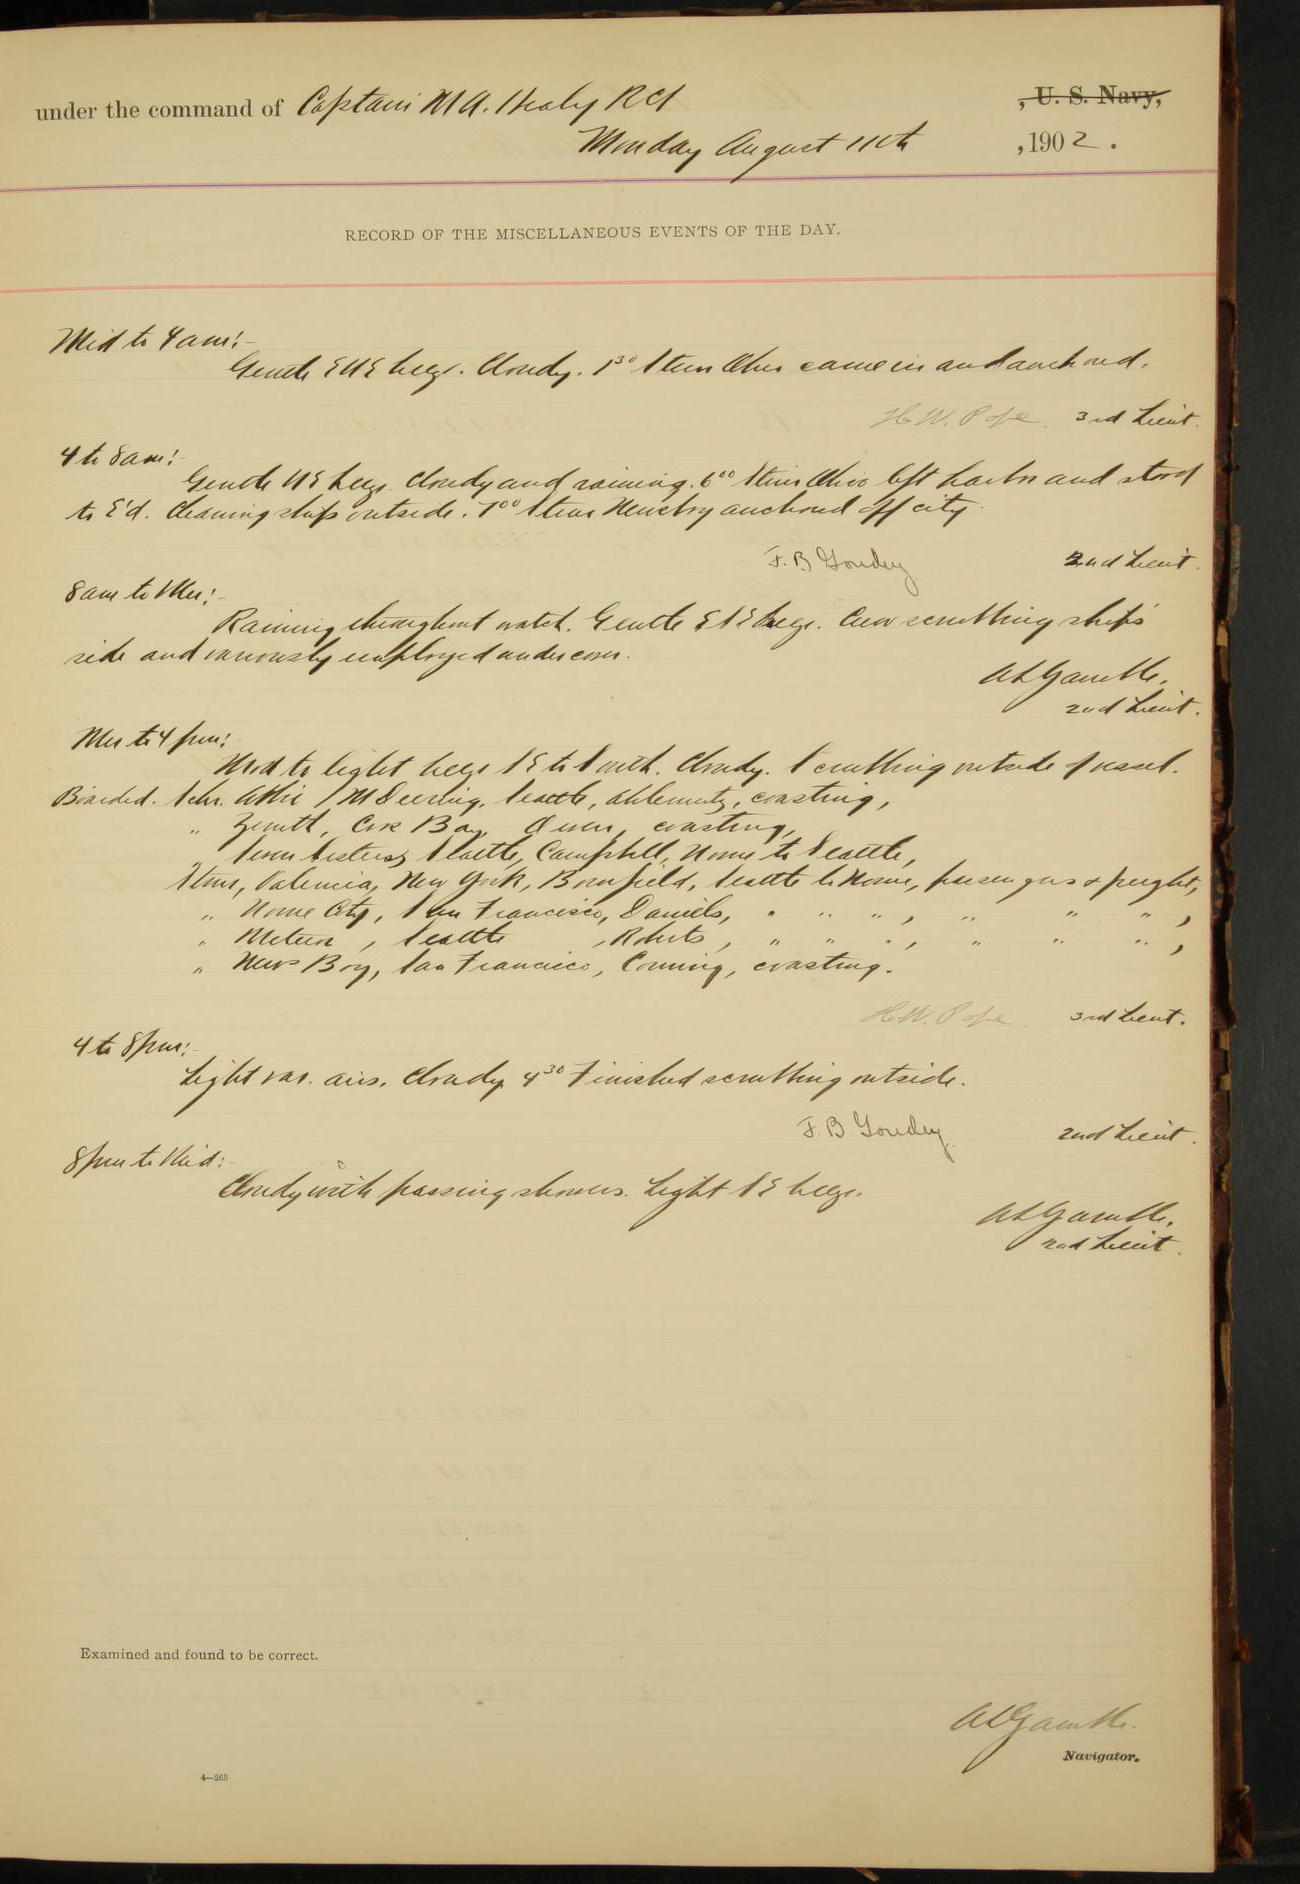 under the command of Captain M A. Healy RCS , U. S. Navy,
Monday August 11th , 1902.
RECORD OF THE MISCELLANEOUS EVENTS OF THE DAY.
Mid to 4 am:-
Gentle ENE breeze. Cloudy. 1³⁰ Stmr Ohio came in and anchored.
H. W. Pope. 3rd Lieut.
4 to 8 am:-
Gentle NE breeze. Cloudy and raining. 6⁰⁰ Stmr Ohio left harbor and stood
to E'd. Cleaning ship outside. 7⁰⁰ Stmr anchored off city.
F. B Goudey 2nd Lieut.
8 am to Mer:-
Raining throughout watch. Gentle ESE breeze. Crew scrubbing ship's
side and variously employed under cover.
A L Gamble,
2nd Lieut.
Mer to 4 pm:
Mod to light breeze SE to South. Cloudy. Scrubbing outside of vessel.
Boarded. Schr. I M Deering, Seattle, coasting,
" Zenith, Coos Bay, Olsen, coasting,
" Seven Sisters, Seattle, Campbell, Nome to Seattle,
Stmr, Valencia, New York, Seattle to Nome, passengers & freight,
" Nome City, San Francisco, Daniels, " " " , " " " ,
" Meteor , Seattle , Roberts , " " " , " " " ,
" News Boy, San Francisco, Corning, coasting.
H. W. Pope. 3rd Lieut.
4 to 8 pm:-
Light var. airs. Cloudy. 4³⁰ Finished scrubbing outside.
F. B. Goudey. 2nd Lieut.
8 pm to Mid:-
Cloudy with passing showers. Light SE breeze.
A L Gamble,
2nd Lieut.
Examined and found to be correct.
A L Gamble.
Navigator.
4—265